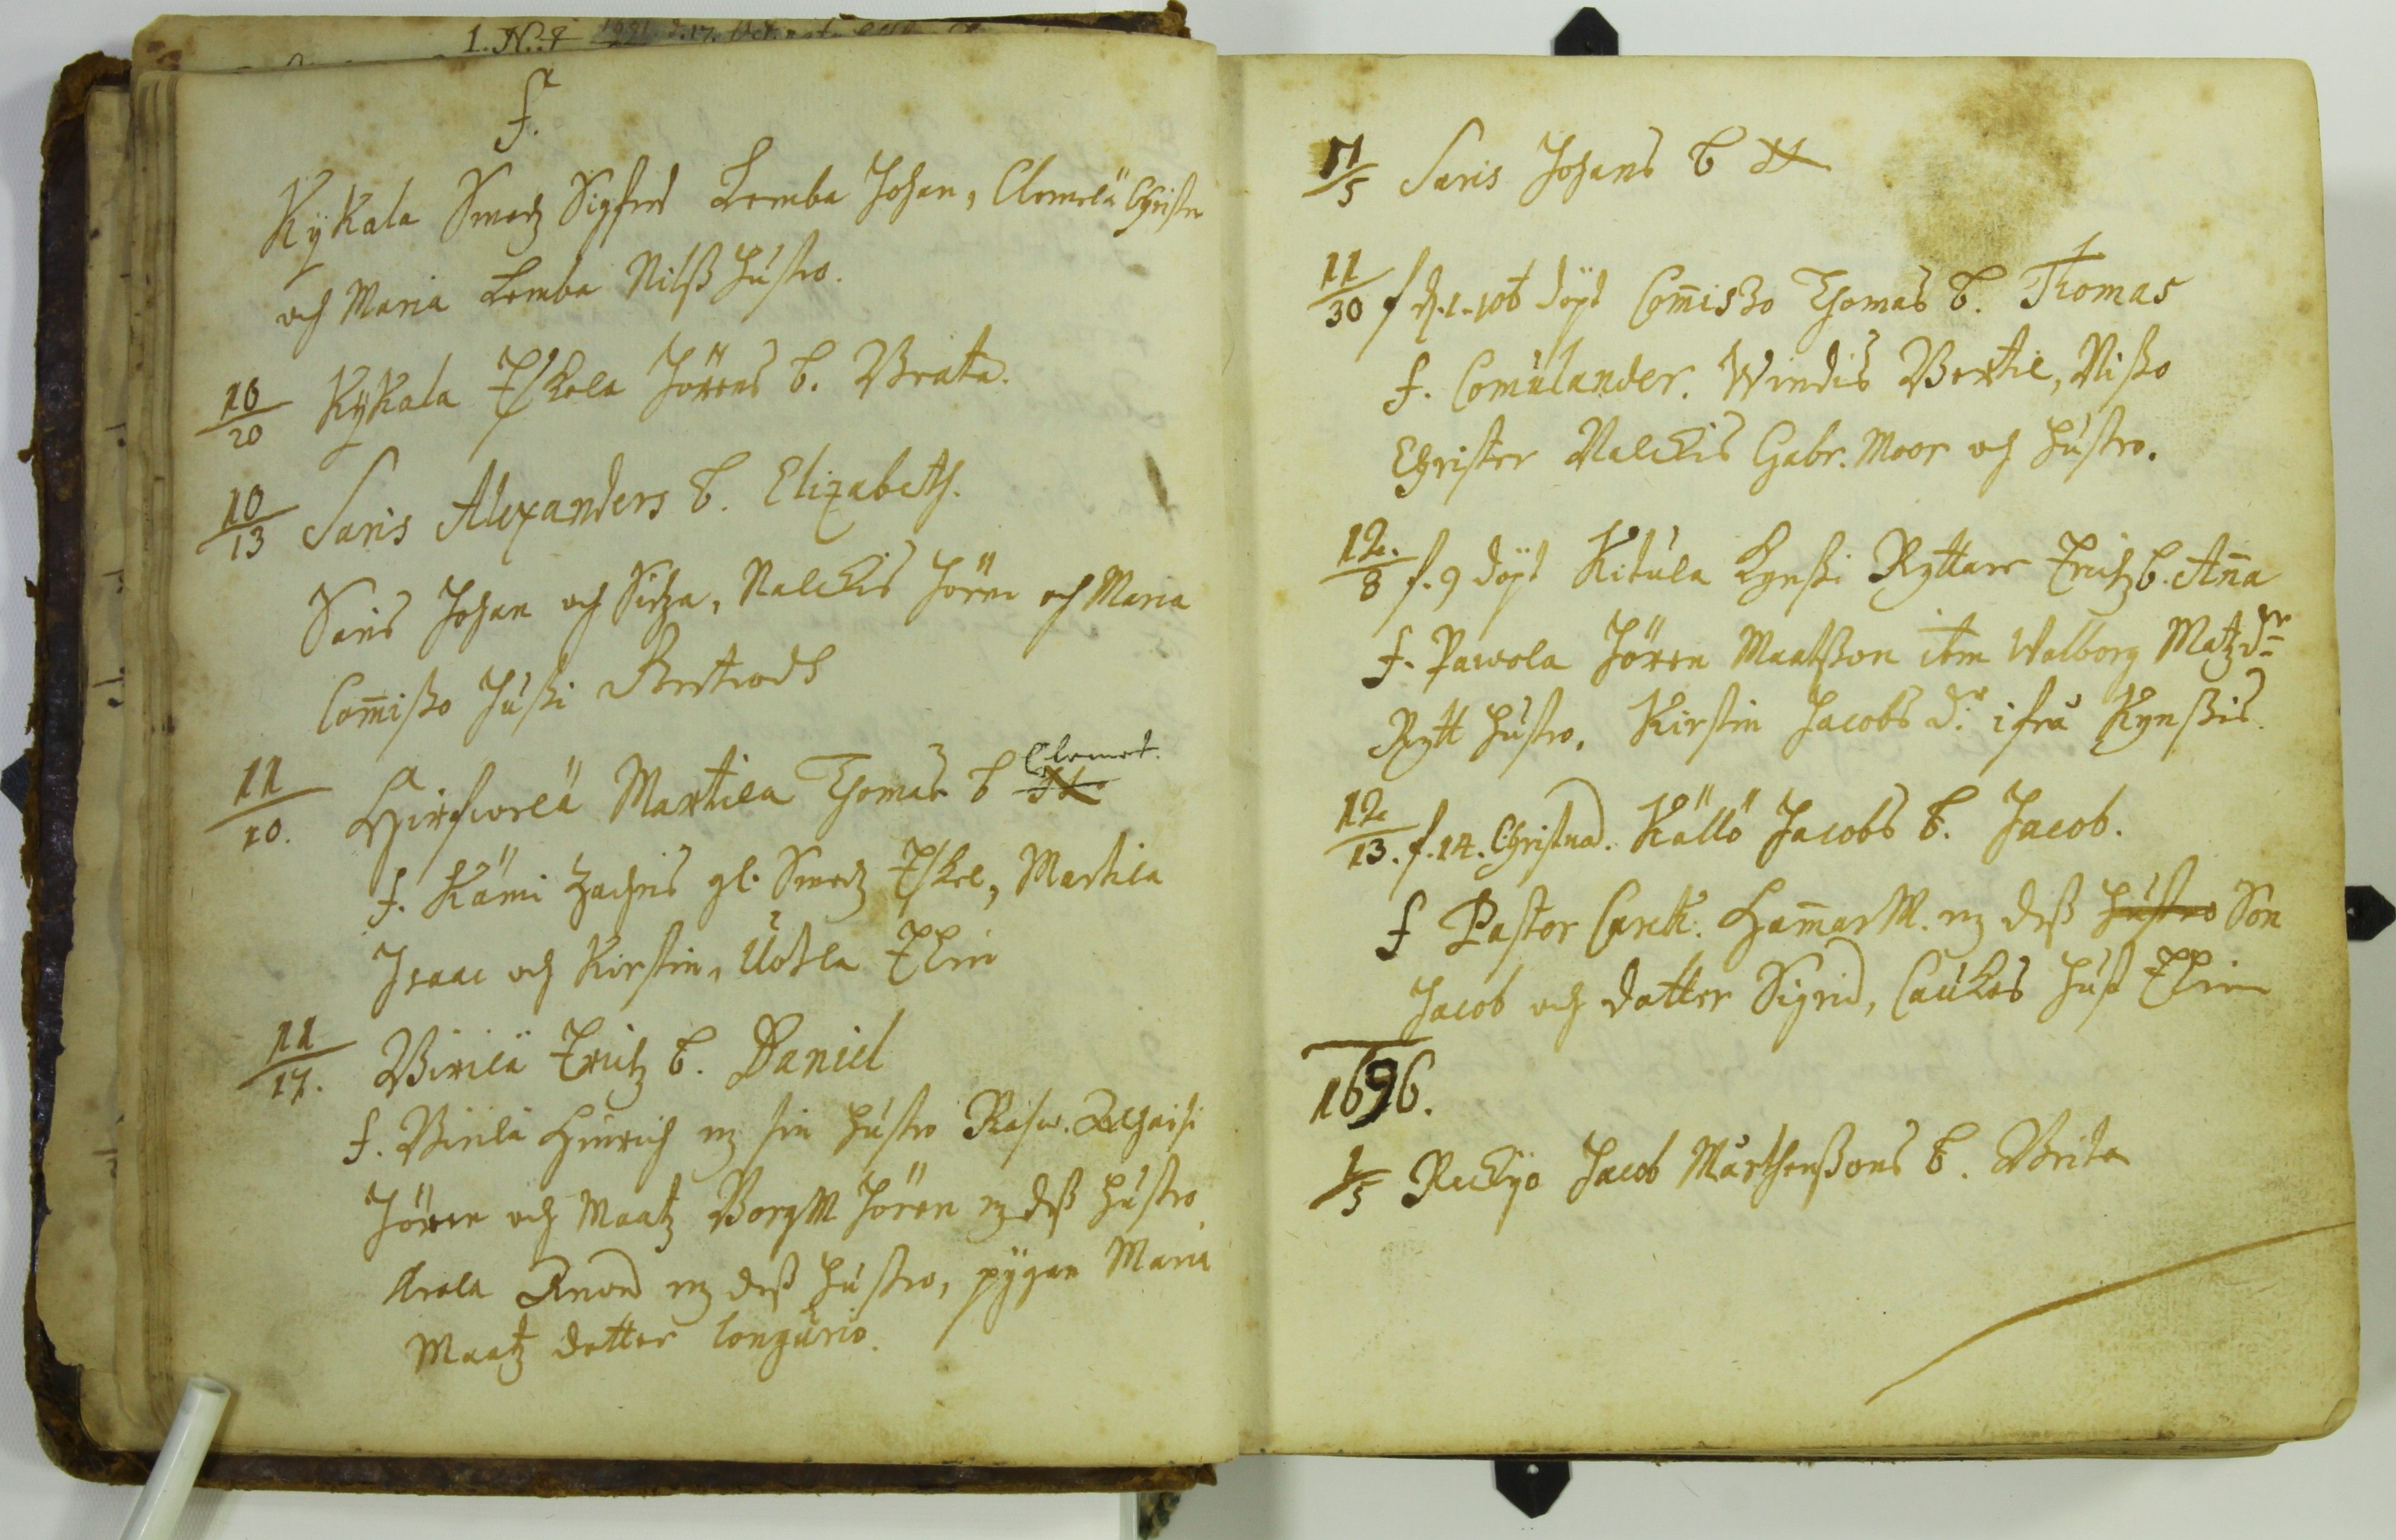 1. N:4
f.
Kÿkala Smedz Sigfred Lemba Johan, Clemelä Christer
och Maria Lemba Nilß hústro.
10/20 Kÿkala Eskela Jörens b. Beata.
10/13 Saris Alexanders b. Elizabeth.
Saris Johan och Sidza, Nalckis Jören och Maria
Com̄ißo Jußi
11/10. Hirswelä Martila Thomas b Clemet.
f. Kämi Zachris gl. Smedz Eskel, Martila
Isaac och Kirstin, Uotila Elin
11/17. Birilä Erichz b. Daniel
f. Birilä Hinrich mz sin hústro
Jören och Maatz BorgM Jören mz deß hústro
Knod mz deß hústro, pÿgan Maria
Maatz dotter
11/5 Saris Johans b
11/30 f döpt Com̄ißo Thomas b. Thomas
f. Comúlander. Windis Bertil, Nißo
Christer Nalckis Gabr. Moor och hústro.
12./8 f. 9 döpt Kitúla Kynßi Ryttare Erichz b. An̄a
f. Pawola Jören Maatßon itm Walborg Matzdr
Rytt hústro, Kirstin Jacobs dr ifrå Kynßis
12/13. f. 14. Christnad. Källö Jacobs b. Jacob.
f Pastor Ham̄arM. mz deß hústro Son
Jacob och dotter Sigrid, Caúkos húst Elin
1696.
1/5 Jacob Mårthenßons b. Brita